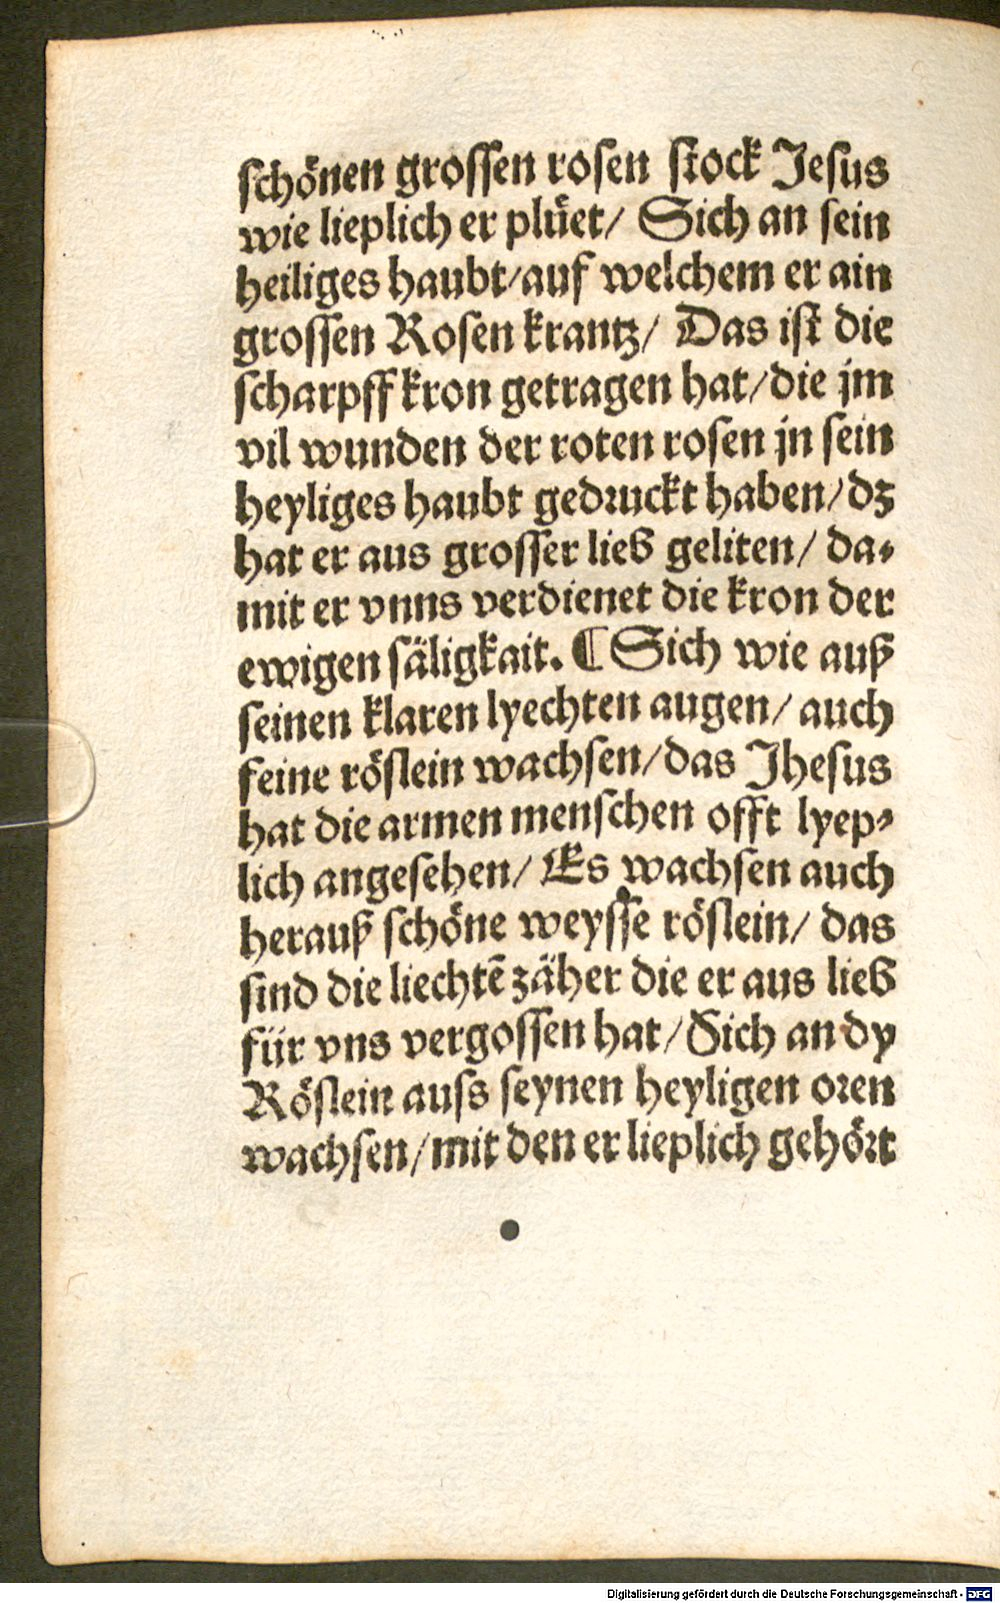 schönen grossen rosen stock Jesus
wie lieplich er plüet/ Sich an sein
heiliges haubt/auf welchem er ain
grossen Rosen krantz/ Das ist die
scharpff kron getragen hat/die jm
vil wunden der roten rosen jn sein
heyliges haubt gedruckt haben/dz
hat er aus grosser lieb geliten/ da-
mit er vnns verdienet die kron der
ewigen säligkait. ¶ Sich wie auß
seinen klaren lyechten augen/ auch
feine röslein wachsen/das Jhesus
hat die armen menschen offt lyep-
lich angesehen/ Es wachsen auch
herauß schöne weysse röslein/ das
sind die liechtē zäher die er aus lieb
für vns vergossen hat/Sich an dy
Röslein auss seynen heyligen oren
wachsen/mit den er lieplich gehört
Digitalisierung gefördert durch die Deutsche Forschungsgemeinschaft - DFG